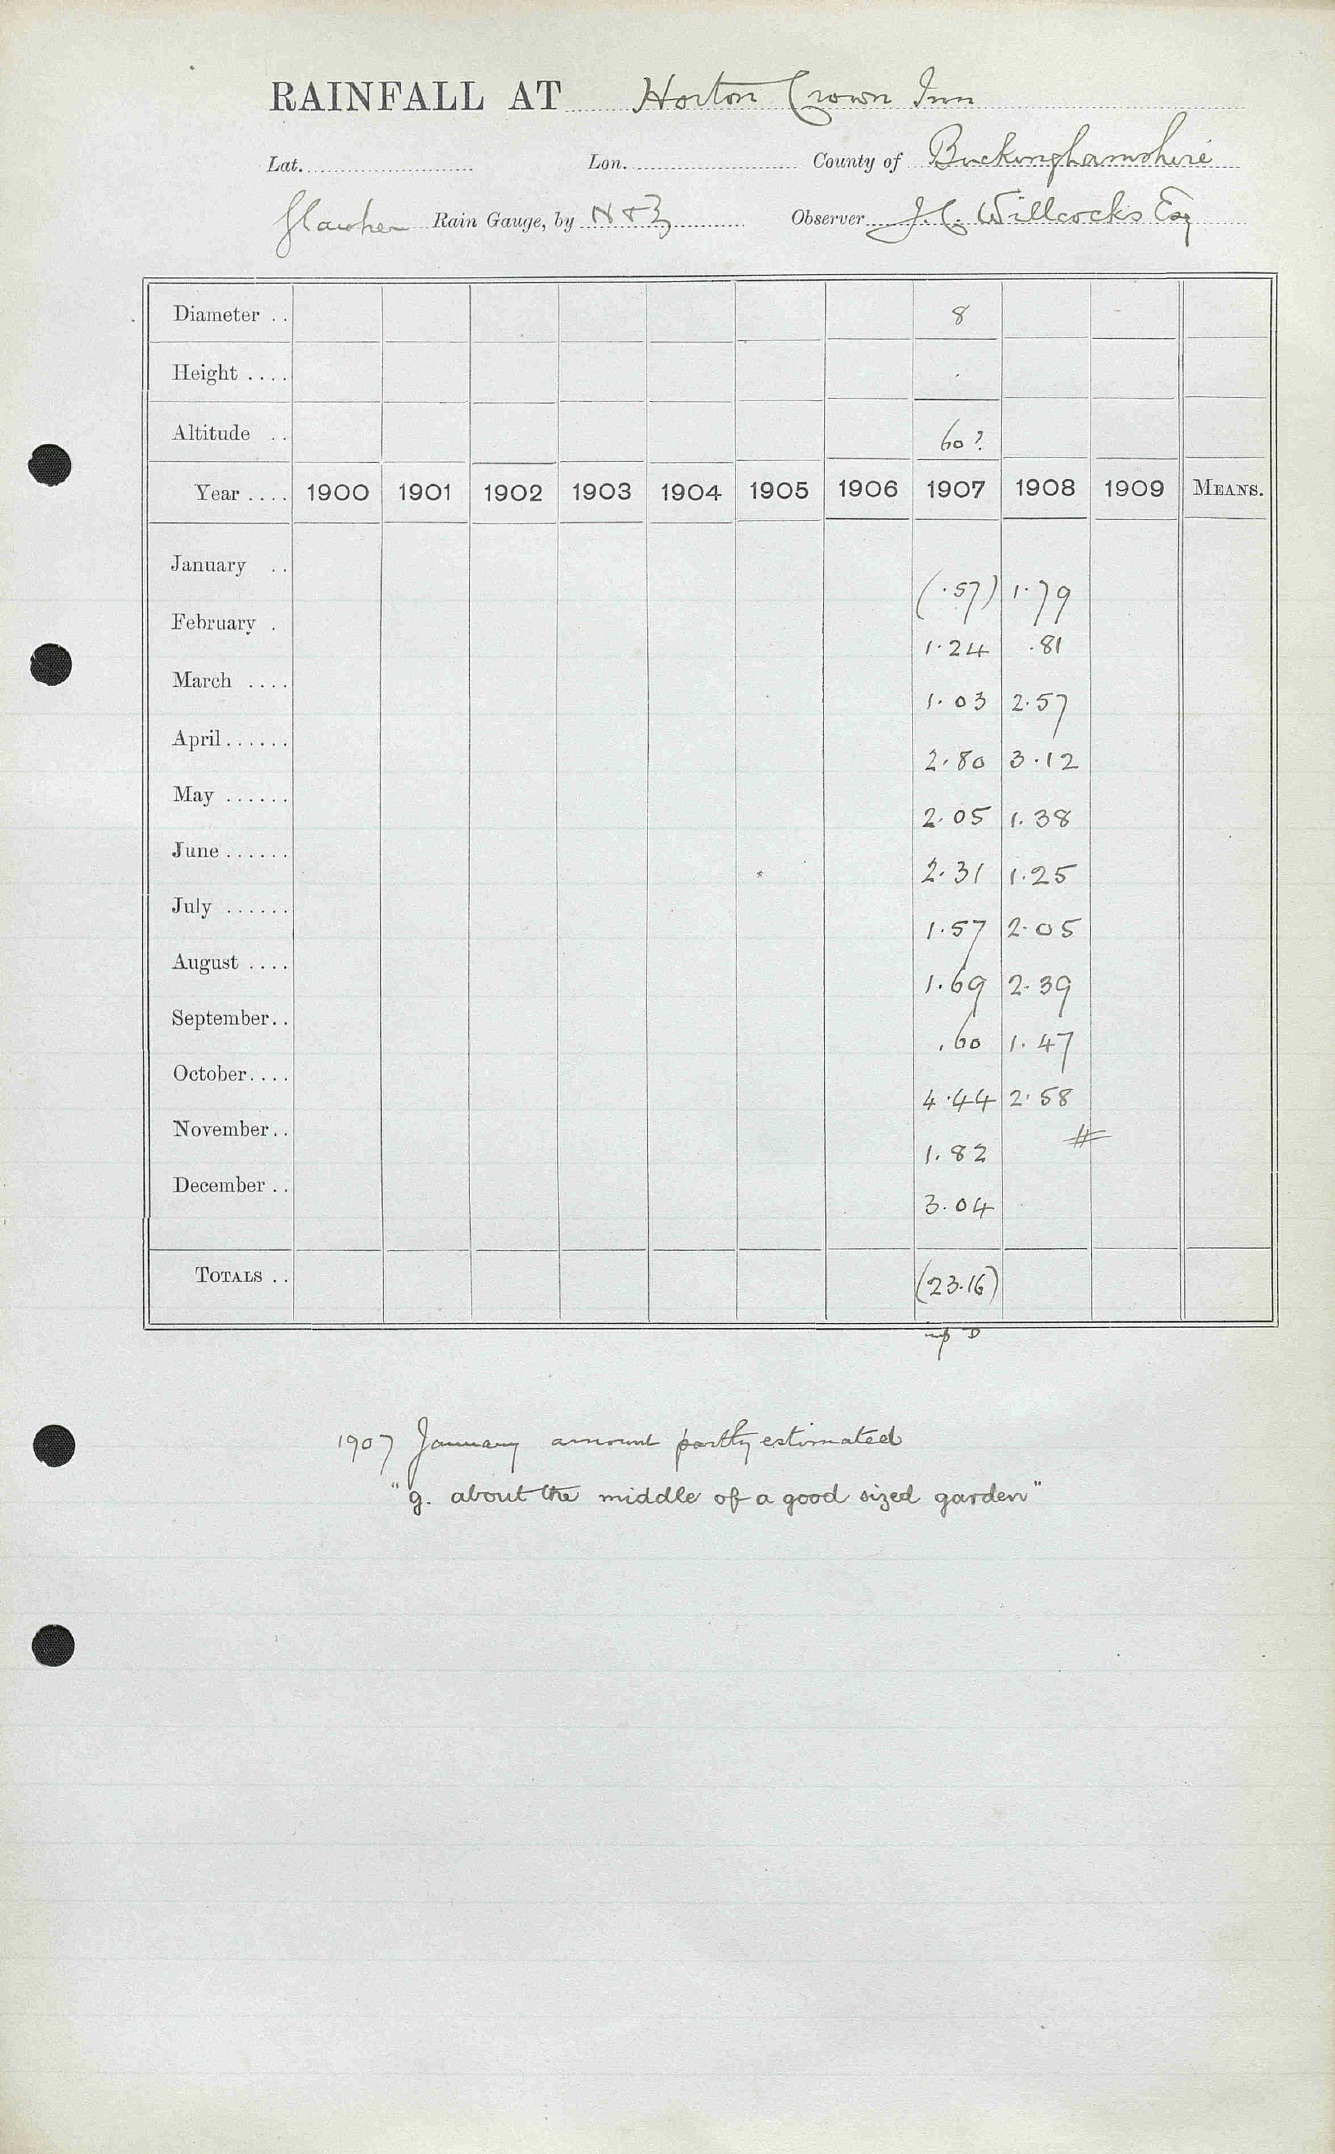 RAINFALL AT Horton Crown Inn
Lat. Lon. County of Buckinghamshire
Glaisher Rain Gauge, by N & Z Observer J. C. Willcocks Esq
Diameter . . 8
Height . . . .
Altitude . . 60 ?
Year . . . . 1900 1901 1902 1903 1904 1905 1906 1907 1908 1909 MEANS.
January . . (.57) 1.79
February . 1.24 .81
March . . . . 1.03 2.57
April . . . . . . 2.80 3.12
May . . . . . . 2.05 1.38
June . . . . . . 2.31 1.25
July . . . . . . 1.57 2.05
August . . . . 1.69 2.39
September . . .60 1.47
October . . . . 4.44 2.58
November . . 1.82 #
December . . 3.04
TOTALS . . (23.16)
1907 January amount partly estimated
"g. about the middle of a good sized garden"